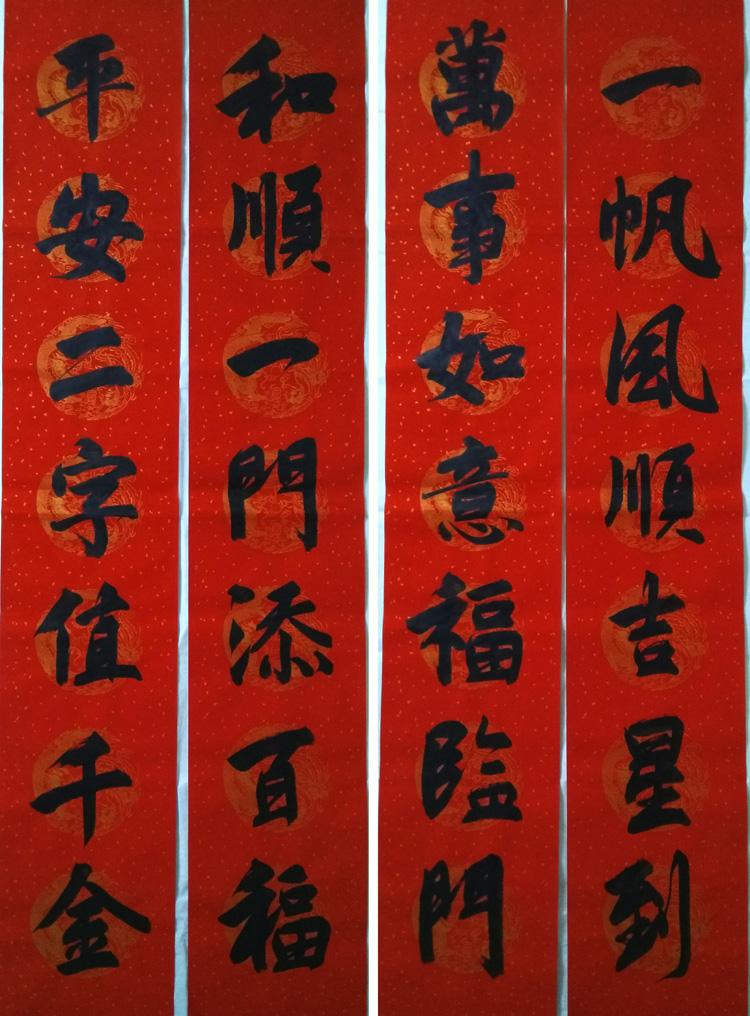 一帆風順吉星到
萬事如意福臨門
和順一門添百福
平安二字值千金